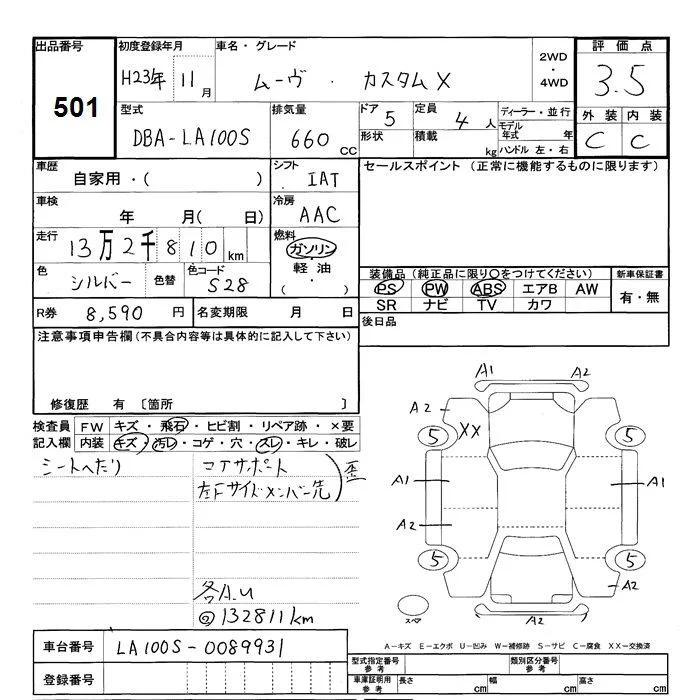 出品番号
501
初度登録年月
H23年 11月
車名・グレード
ムーヴ ・ カスタムX
2WD
・
4WD
評価点
3.5
外装 内装
C C
型式
DBA-LA100S
排気量
660 CC
ドア 5
形状
定員 4 人
積載 kg
ディーラー・並行
モデル年式 年
ハンドル 左・右
車歴
自家用・( )
シフト
IAT
セールスポイント (正常に機能するものに限ります)
車検
年 月(日)
冷房
AAC
走行
13万2千810km
燃料
ガソリン
軽油
( ・ )
色
シルバー
色替
色コード
S28
装備品 (純正品に限り○をつけてください)
PS PW ABS エアB AW
SR ナビ TV カワ
新車保証書
有・無
R券 8,590 円
名変期限 月 日
後日品
注意事項申告欄(不具合内容等は具体的に記入して下さい)
修復歴 有 〔箇所 〕
検査員
記入欄
FW キズ・飛石・ヒビ割・リペア跡・×要
内装 キズ・汚レ・コゲ・穴・スレ・キレ・破レ
シートへたり
コアサポート
左Fサイドメンバー先
歪
各A.U
132811km
A1 A2
A2 XX
5 5
A1 A1
A2
5 5
A2
A2
スペア
A-キズ E-エクボ U-凹み W-補修跡 S-サビ C-腐食 XX-交換済
車台番号 LA100S-0089931
登録番号
型式指定番号
参考
類別区分番号
参考
車庫証明用
参考
長さ cm 幅 cm 高さ cm